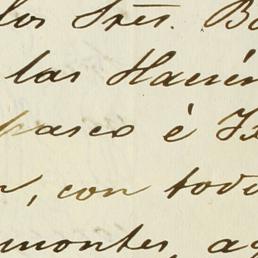 los Sres. B
las Hacien
pasco è Ix
, con todo
montes, ag